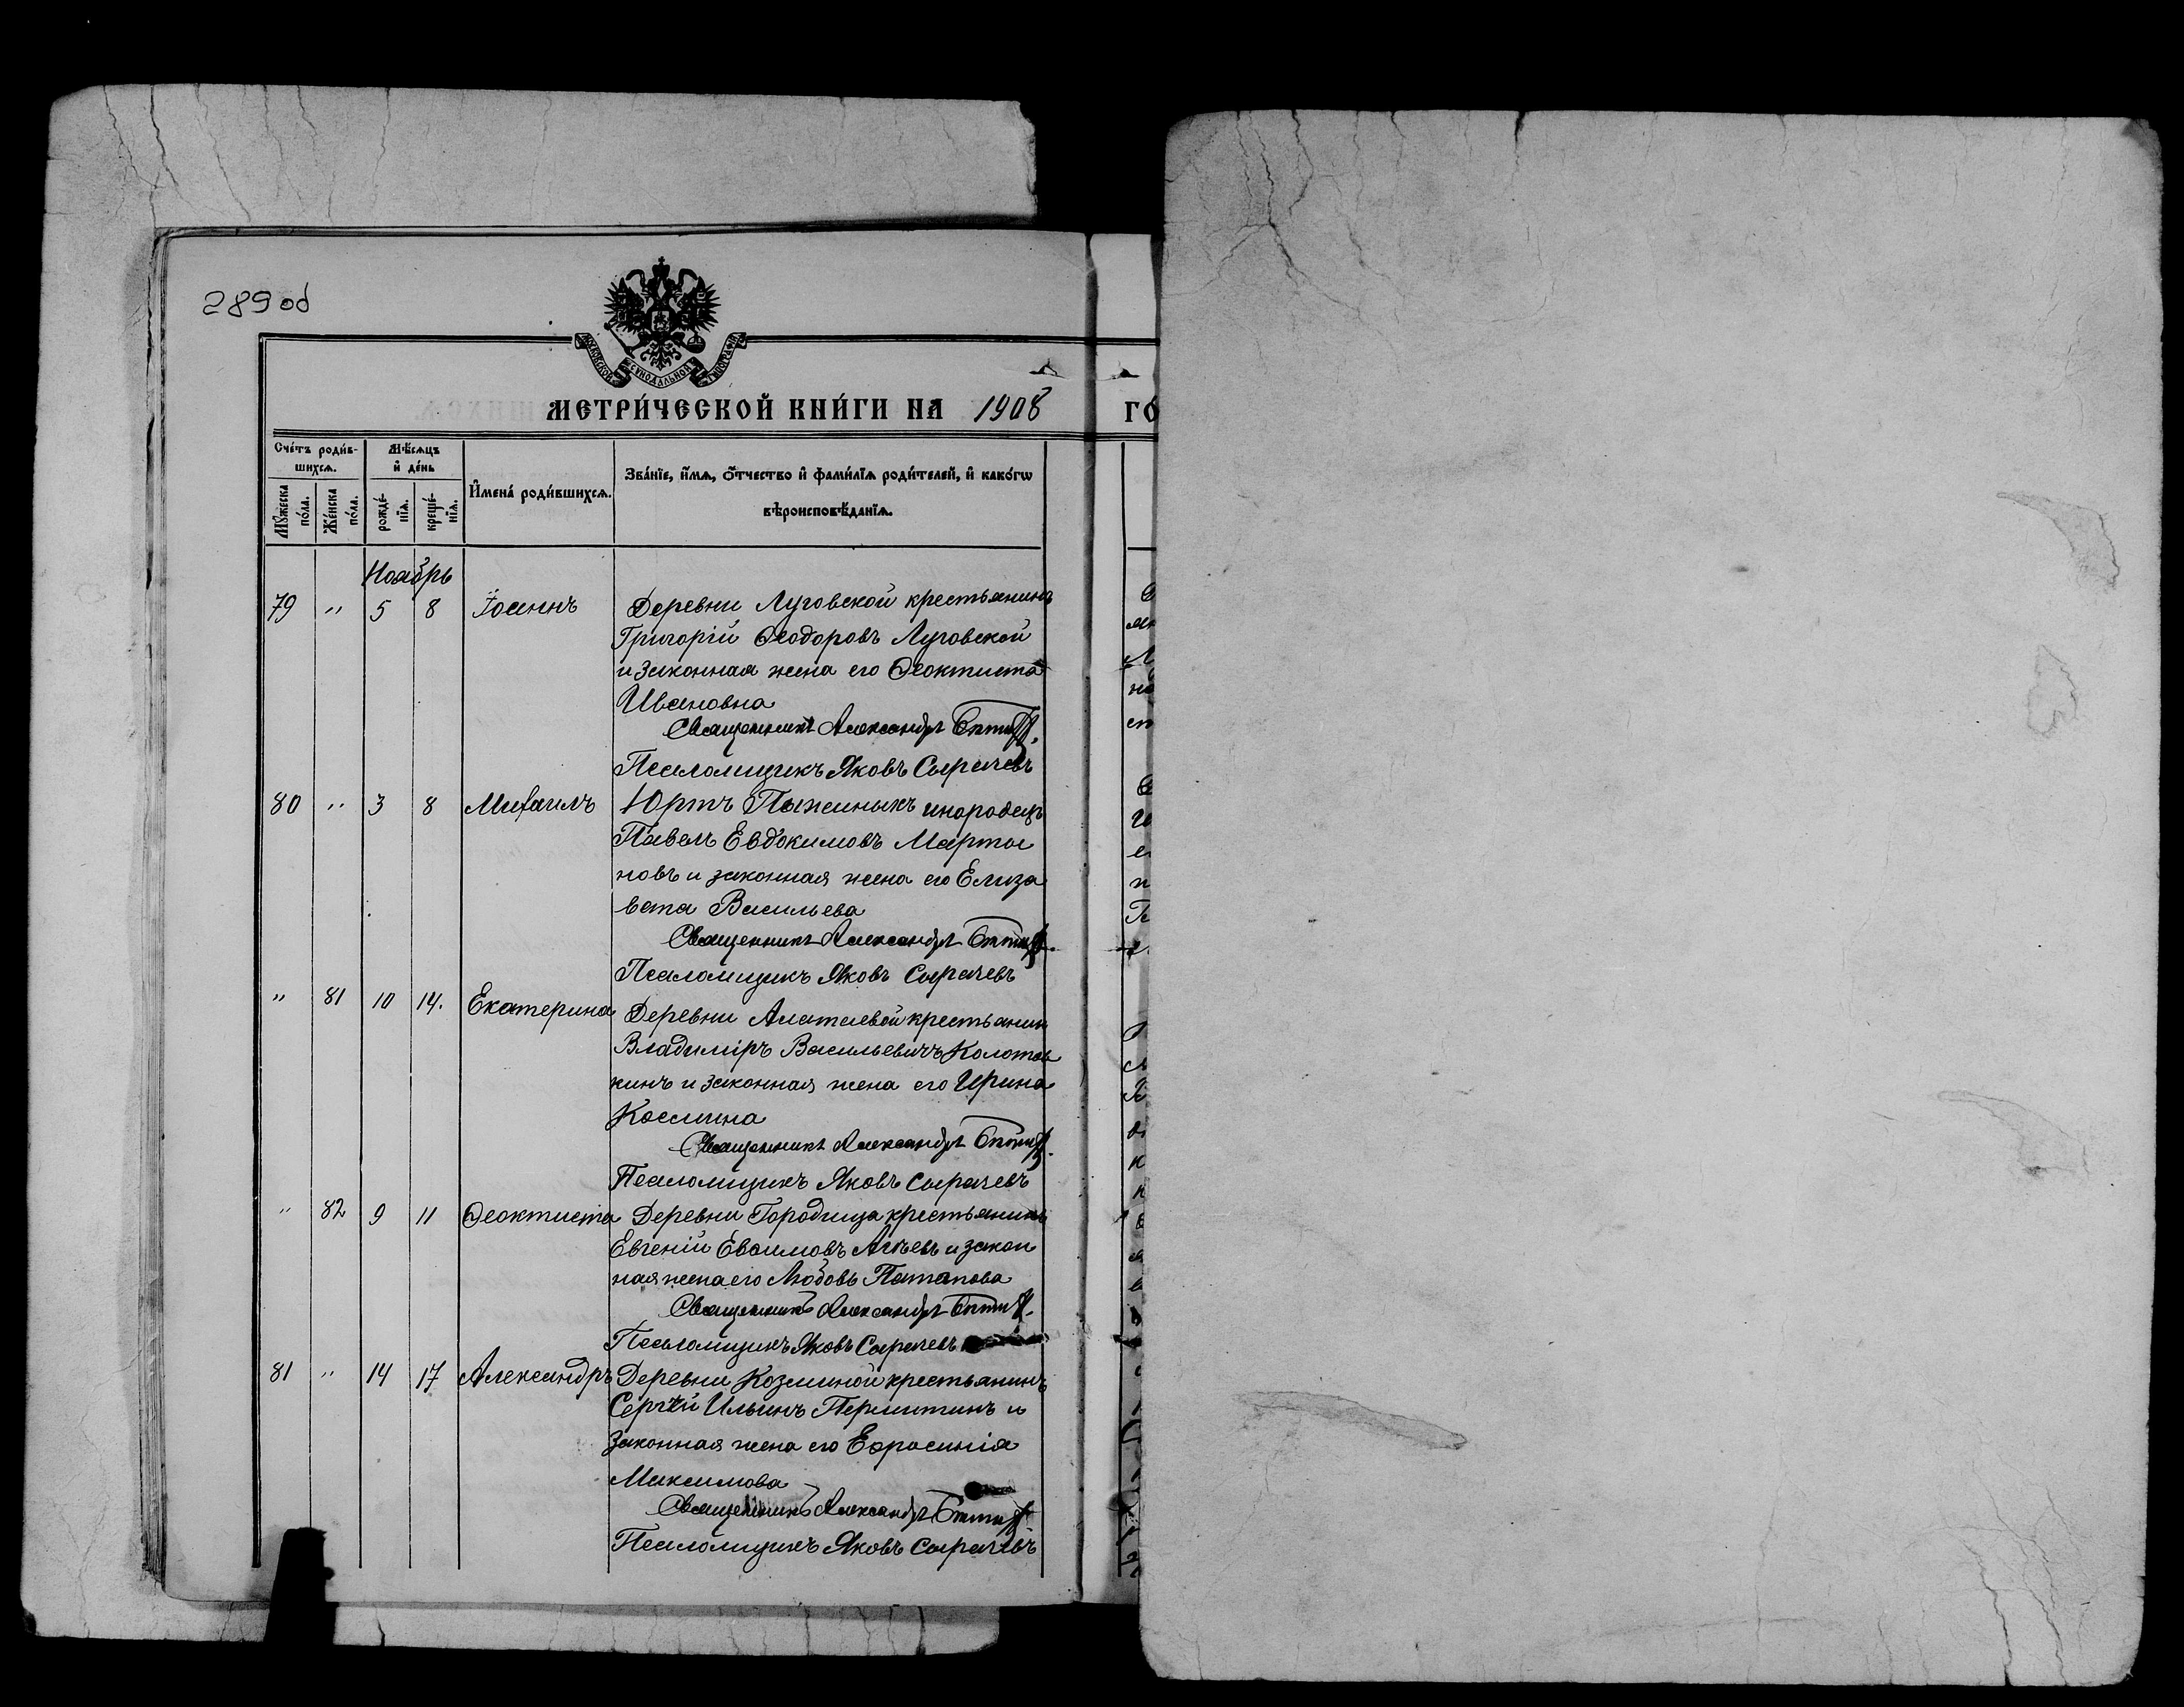 289 об
МОСКОВСКОЙ СѴНОДАЛЬНОЙ ТИПОГРАФІИ
МЕТРИ́ЧЕСКОЙ КНИ́ГИ НА 1908 ГО
Сче́тъ роди́в-
шихсѧ.
Мѣ́сѧцъ
и҆ де́нь
Мꙋ́жеска
по́ла.
Же́нска
по́ла.
рожде́-
нїѧ.
креще́-
нїѧ.
И҆мена̀ роди́вшихсѧ.
Зва́нїе, и҆́мѧ, ѻ҆́тчество и҆ фами́лїѧ роди́телей, и҆ како́гѡ
вѣроисповѣ́данїѧ.
Ноябрь
79 " 5 8 Іоаннъ Деревни Луговской крестьянинъ
Григорій Ѳеодоровъ Луговской
и законная жена его Ѳеоктиста
Ивановна
Священникъ Александръ
Псаломщикъ Яковъ Сырачевъ
80 " 3 8 Михаилъ Юртъ инородецъ
Павелъ Евдокимовъ Марты
новъ и законная жена его Елиза
вета Васильева
Священникъ Александръ
Псаломщикъ Яковъ Сырачевъ
" 81 10 14. Екатерина Деревни крестьянин
Владиміръ Васильевичъ Колотов
кинъ и законная жена его Ирина
Косьмина
Священникъ Александръ
Псаломщикъ Яковъ Сырачевъ
" 82 9 11 Ѳеоктиста Деревни Городища крестьянинъ
Евгеній Агѣевъ и закон
ная жена его Любовь Патапова
Священникъ Александръ
Псаломщикъ Яковъ Сырачевъ
81 " 14 17 Александръ Деревни Козминой крестьянинъ
Сергѣй Ильинъ Пермитинъ и
законная жена его Ефросинія
Максимова
Священникъ Александръ
Псаломщикъ Яковъ Сырачевъ